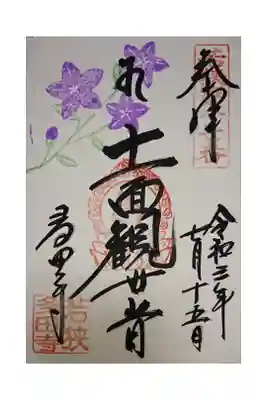 奉拝
令和三年
七月十五日
十一面観世音
多田寺
若狭
多田寺